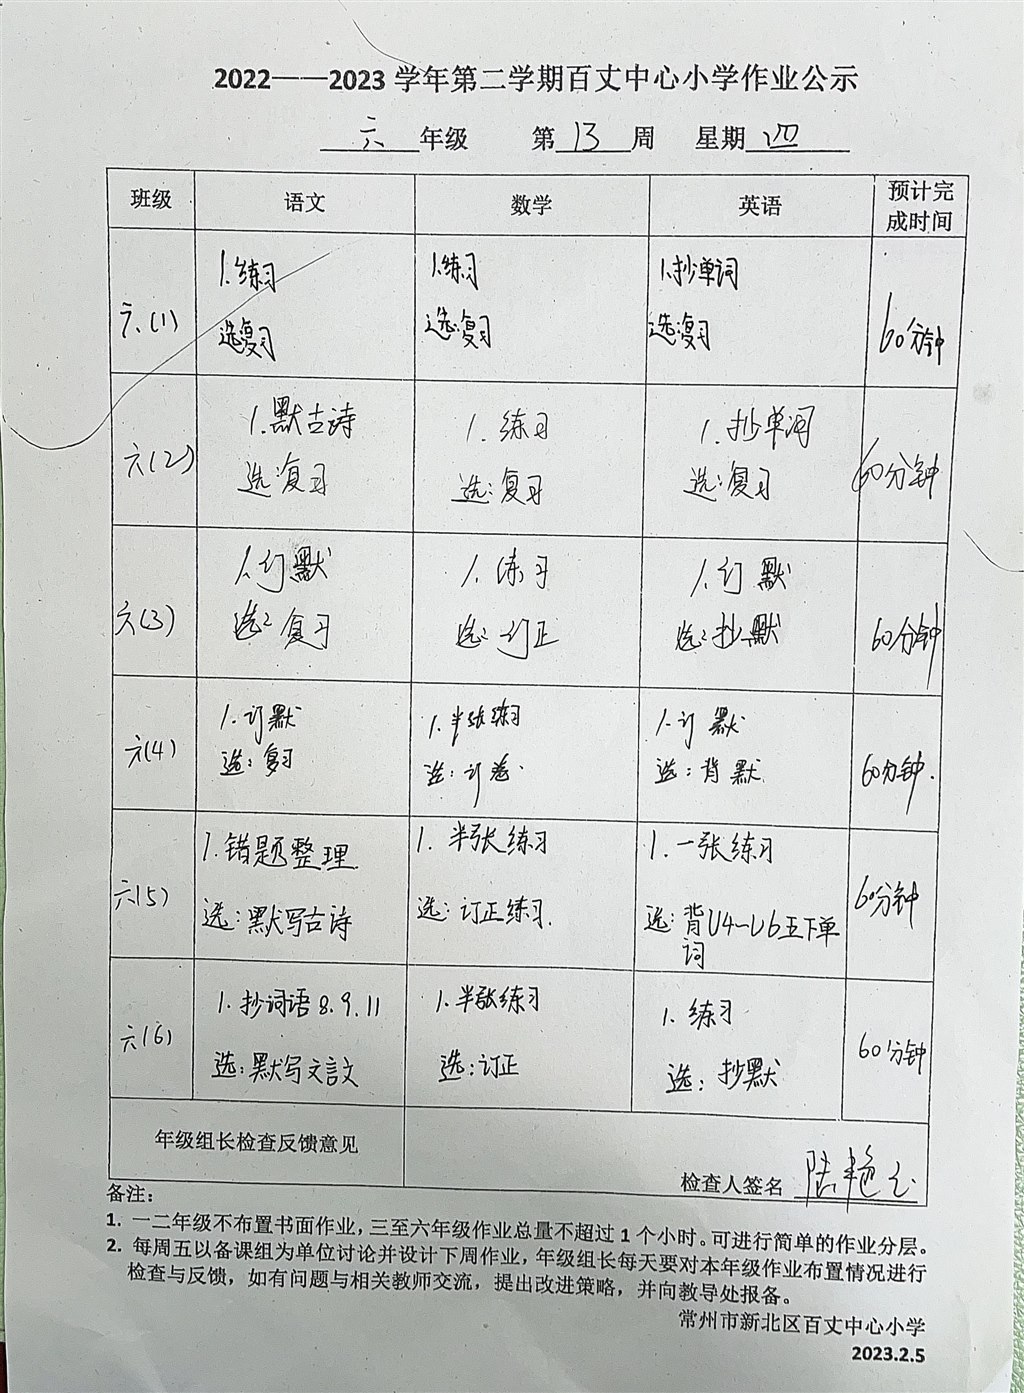 2022——2023 学年第二学期百丈中心小学作业公示
六 年级 第 13 周 星期 四
班级 语文 数学 英语 预计完成时间
六(1)
1.练习
选:复习
1.练习
选:复习
1.抄单词
选:复习
60分钟
六(2)
1.默古诗
选:复习
1.练习
选:复习
1.抄单词
选:复习
60分钟
六(3)
1.订默
选:复习
1.练习
选:订正
1.订默
选:抄默
60分钟
六(4)
1.订默
选:复习
1.半张练习
选:订卷.
1.订默
选:背默.
60分钟.
六(5)
1.错题整理
选:默写古诗
1.半张练习
选:订正练习.
1.一张练习
选:背U4~U6五下单
词
60分钟
六(6)
1.抄词语8.9.11
选:默写文言文
1.半张练习
选:订正
1.练习
选:抄默
60分钟
年级组长检查反馈意见
检查人签名 陆艳
备注:
1. 一二年级不布置书面作业,三至六年级作业总量不超过 1 个小时。可进行简单的作业分层。
2. 每周五以备课组为单位讨论并设计下周作业,年级组长每天要对本年级作业布置情况进行
检查与反馈,如有问题与相关教师交流,提出改进策略,并向教导处报备。
常州市新北区百丈中心小学
2023.2.5